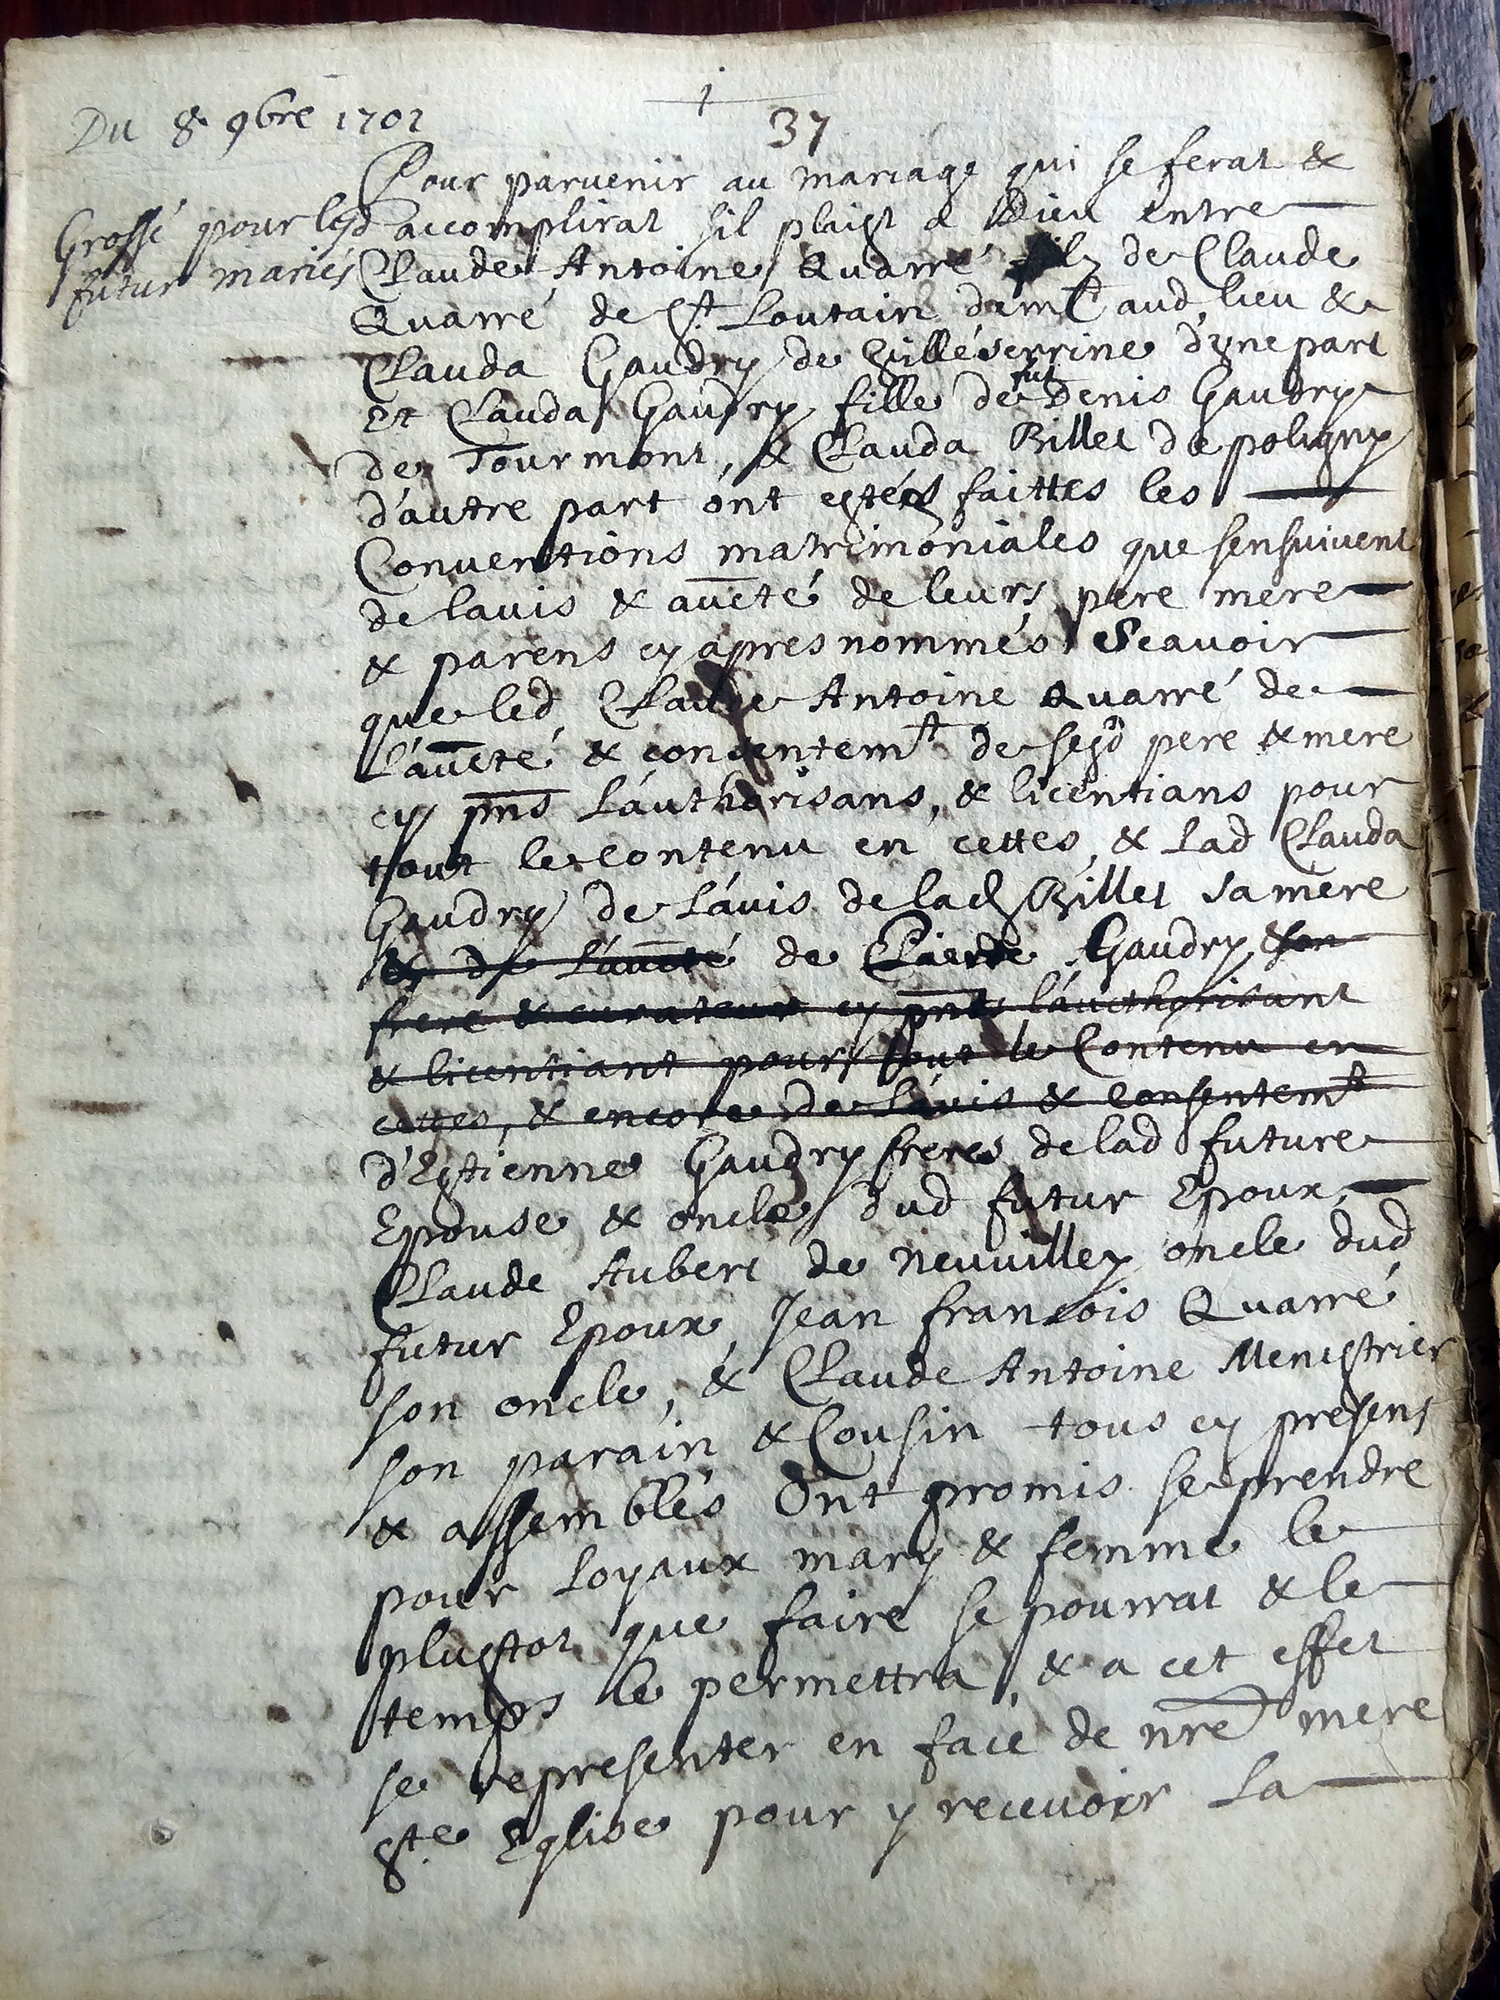 Du 8. 9bre 1702
37
Pour paruenir au mariage qui se ferat &
Grossé pour lesd
futur mariés
accomplirat sil plaist a Dieu entre
Claude Antoine Quarré filz de Claude
Quarré de St. Loutain demt aud. lieu &
Clauda Gaudry de Villéserrine d'une part
Et Clauda Gaudry fille de fut Denis Gaudry
de Tourmont, & Clauda Billet de poligny
d'autre part ont estées faittes les
Conventions matrimoniales que sensuivent
de lauis & aucté de leurs pere mere
& parens cy apres nommés Scauoir
que led. Claude Antoine Quarré de
L'aucté & consentemt de sesd pere & mere
cy pns L'authorisans, & licentians pour
tout le Contenu en cettes, & Lad Clauda
Gaudry de L'auis de lad Billet sa mere
& de L'aucté de Gaudry son
frere & curateur cy pnt l'aucthorisant
& licentiant pour tout le Contenu en
cettes, & encore de L'auis & Consentemt
d'Estienne Gaudry freres de lad future
Epouse & oncle dud futur Epoux,
Claude Aubert de Neuuilley oncle dud
futur Epoux, Jean francois Quarré
son oncle, & Claude Antoine Menestrier
son parain & Cousin tous cy presens
& assemblés Ont promis se prendre
pour Loyaux mary & femme le
plustot que faire se pourrat & le
temps le permettra, & a cet effet
se representer en face de nre mere
Ste Eglise pour y receuoir La